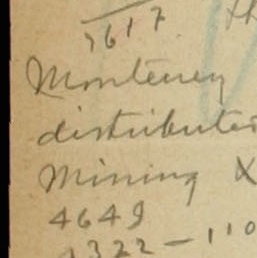 th
7617
Monterey
distributed
Mining X
4649
1322 - 110